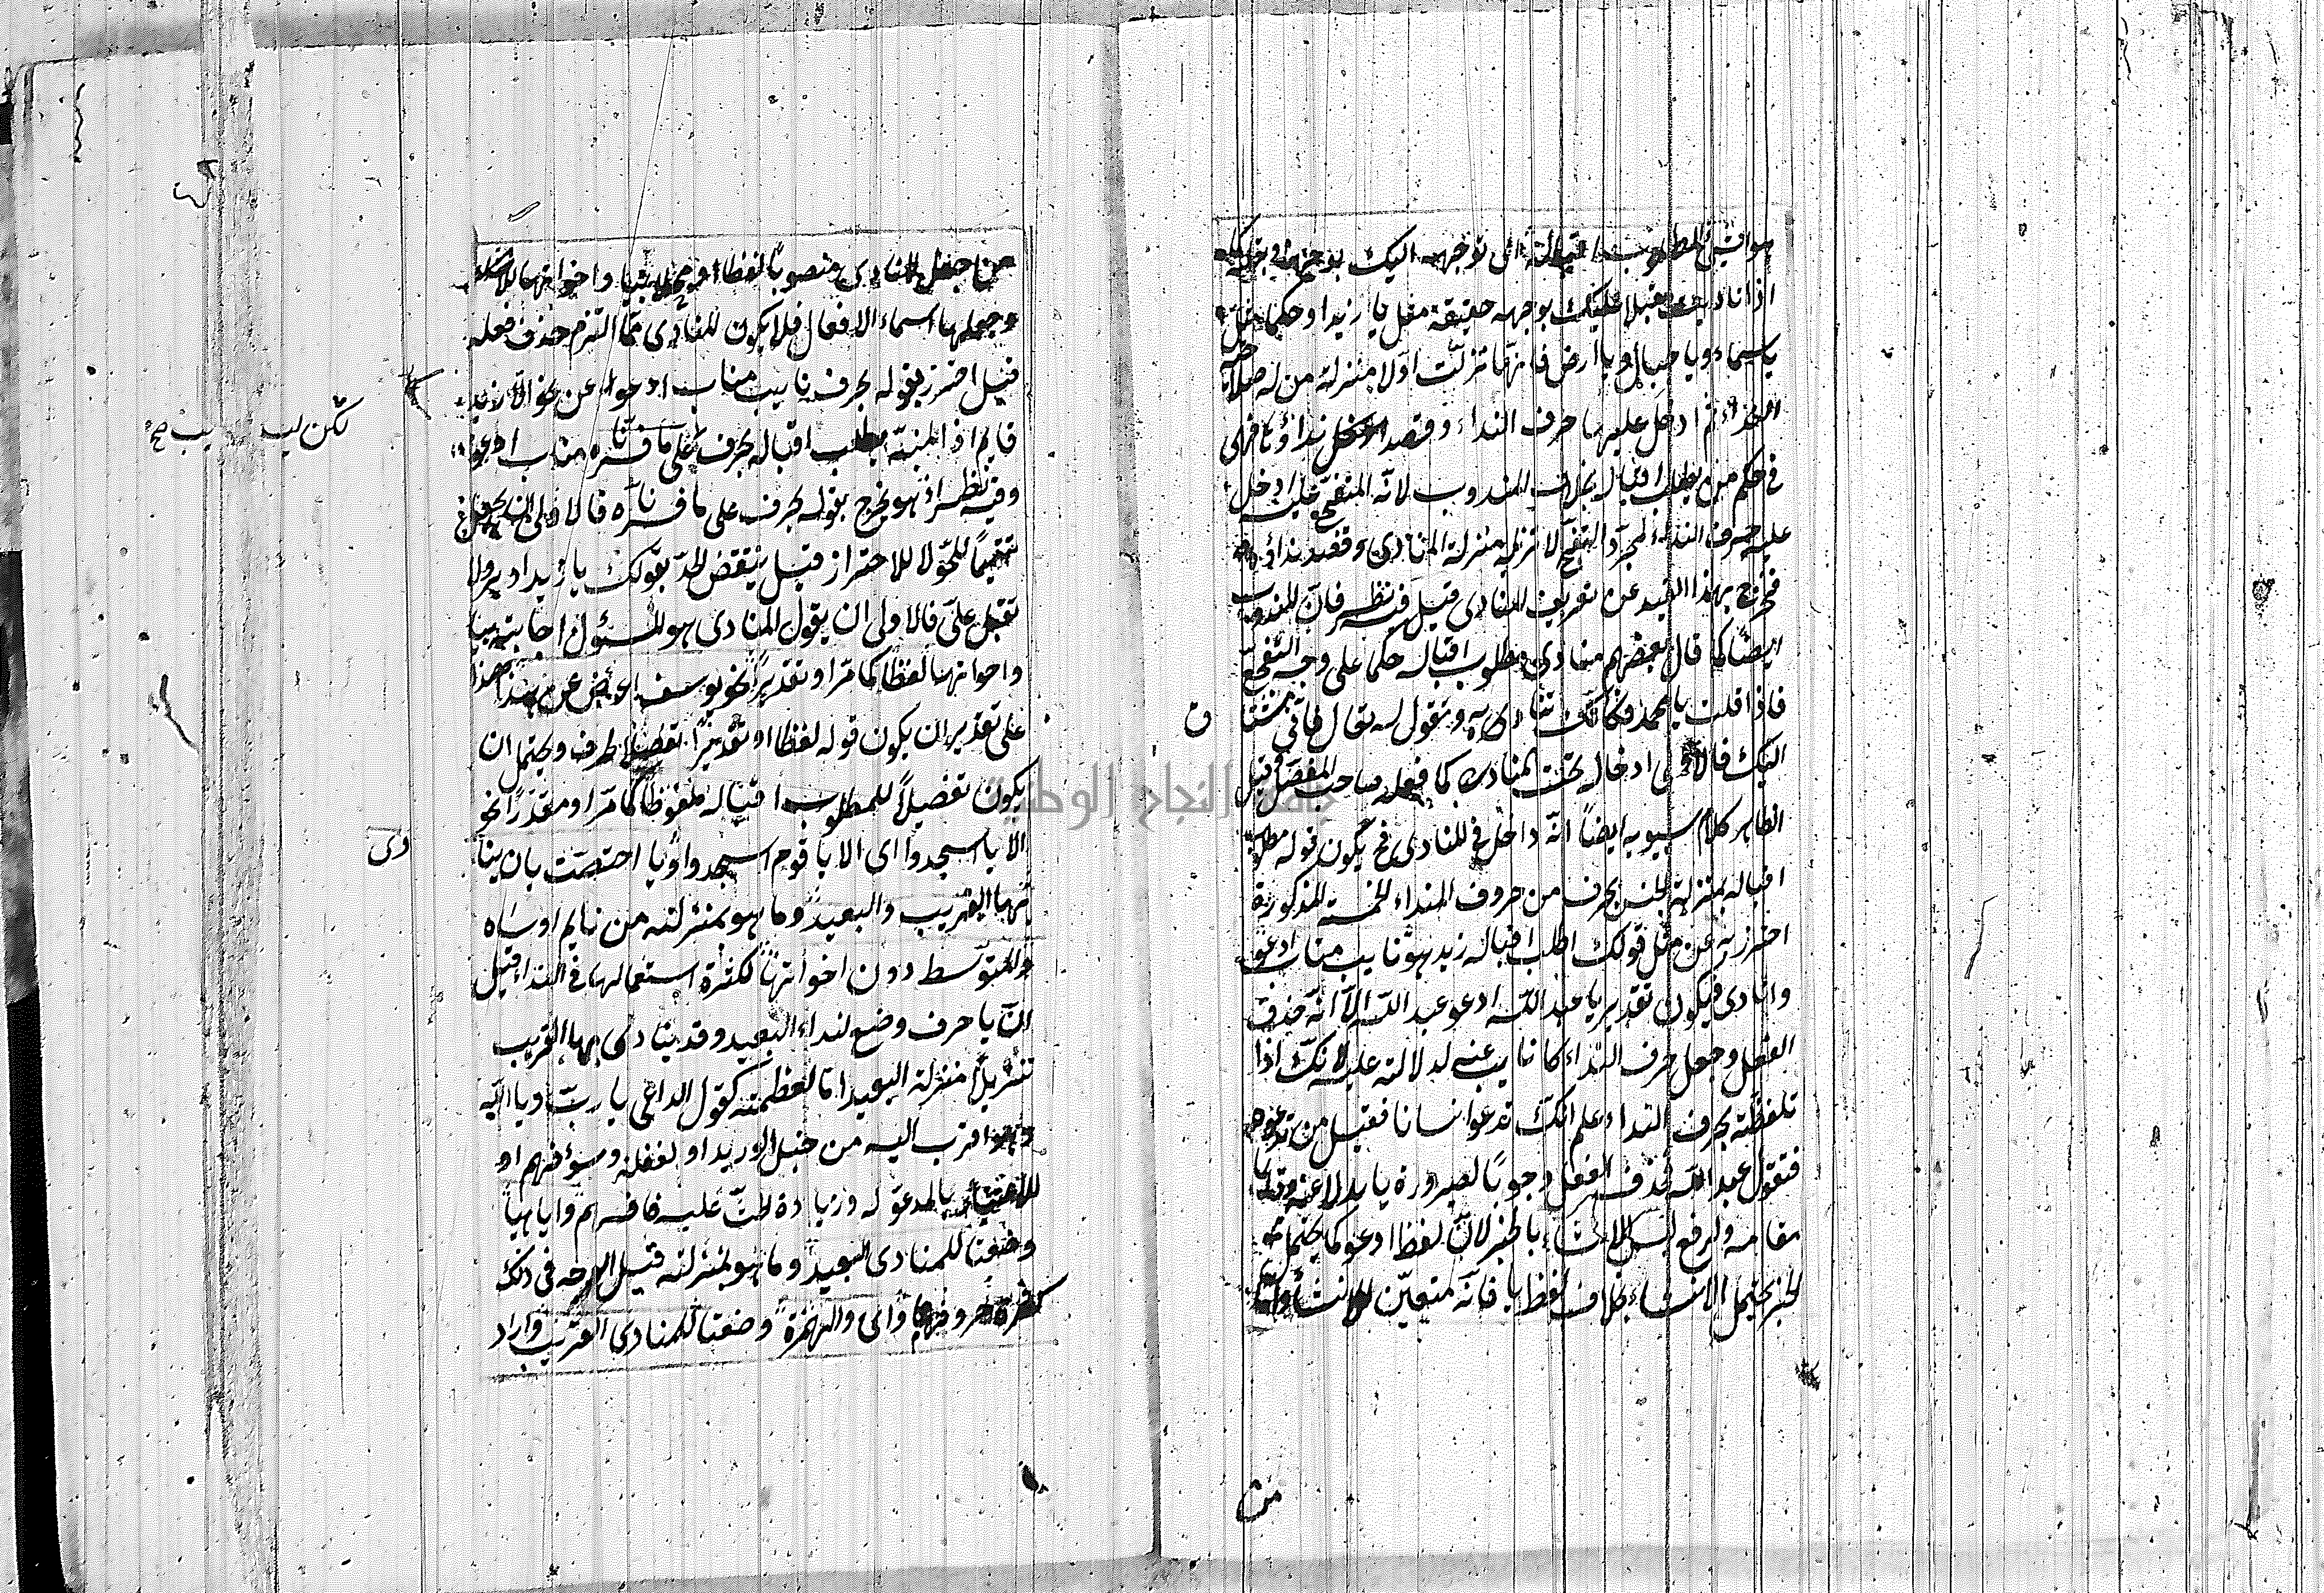 هو اى المطلوب اقباله اى توجهه اليك بوجهه او بقلبه
اذا ناديت مقبلا عليك بوجهه حقيقة مثل يا زيد او حكما مثل
يا سماء ويا جبال ويا ارض فانها نزلت اولا منزلة من له صلاحية
النداء ثم ادخل عليها حرف النداء وقصد نداؤها فهى
فى حكم من يطلب اقباله بخلاف المندوب لانه المتفجع عليه ادخل
عليه حرف النداء لمجرد التفجع لا تنزيله منزلة المنادى وقصد ندائه
فخرج بهذا القيد عن تعريف المنادى قيل فيه نظر فان المندوب
ايضا كما قال بعضهم منادى مطلوب اقباله حكما على وجه التفجع
فاذا قلت يا محمداه فكانك تناديه وتقول له تعال فانى مشتاق
اليك فالاولى ادخاله تحت المنادى كما فعله صاحب المفصل وقيل
الظاهر كلام سيبويه ايضا انه داخل فى المنادى فح يكون قوله مطلوب
اقباله بمنزلة الجنس بحرف من حروف النداء الخمسة المذكورة
احترز به عن مثل قولك اطلب اقبال زيد هو نايب مناب ادعو
وانادى فيكون تقدير يا عبد الله ادعو عبد الله الا انه حذف
الفعل وجعل حرف النداء كانا يب عنه لدلالته عليه لانك اذا
تلفظت بحرف النداء علم انك تدعو انسانا فقيل من تدعوه
فتقول عبد الله فحذف الفعل وجوبا لصيرورة يا بدلا عنه وقايما
مقامه ولرفع لبس الانشاء بالخبر لان لفظ ادعو كما يحتمل
الخبر يحتمل الانشاء بخلاف لفظ يا فانه متعين للانشاء
من
من جعل المنادى منصوبا لفظا او محلا بيا واخواتها
وجعلها اسماء الافعال فلا يكون المنادى مما التزم حذف فعله
قيل احترز بقوله بحرف نايب مناب ادعو عن نحو الا زيد
قايم اذ المنبه يطلب اقباله بحرف على ما فسرناه مناب ادعو
لكن ليس نايب صح
وفيه نظر اذ هو يخرج بقوله بحرف على ما فسرناه فالاولى ان يجعل
تتميما للحد لا للاحتراز قيل ينتقض الحد بقولك يا زيد ادبر ولا
تقبل على فالاولى ان يقول المنادى هو المسئول اجابته بيا
واخواتها لفظا كما مر او تقديرا نحو يوسف اعرض عن هذا هذا
على تقدير ان يكون قوله لفظا او تقديرا تفصيلا لحرف ويحتمل ان
يكون تفصيلا للمطلوب اقباله ملفوظا كما مر او مقدرا نحو
الا يا اسجدوا اى الا يا قوم اسجدوا ويا اختصت بان ينادى
بها القريب والبعيد وما هو بمنزلته من نايم او ساه
والمتوسط دون اخواتها لكثرة استعمالها فى النداء قيل
ان يا حرف وضع لنداء البعيد وقد ينادى بها القريب
تنزيلا منزلة البعيد اما لعظمته كقول الداعى يا رب ويا الله
وهو اقرب اليه من حبل الوريد او لغفلة وسوء فهم او
للاعتناء بالمدعو له وزيادة الحث عليه فافهم وايا هيا
وضعتا للمنادى البعيد وما هو بمنزلته قيل الوجه فى ذلك
كثرة حروفهما واى والهمزة وضعتا للمنادى القريب واراد